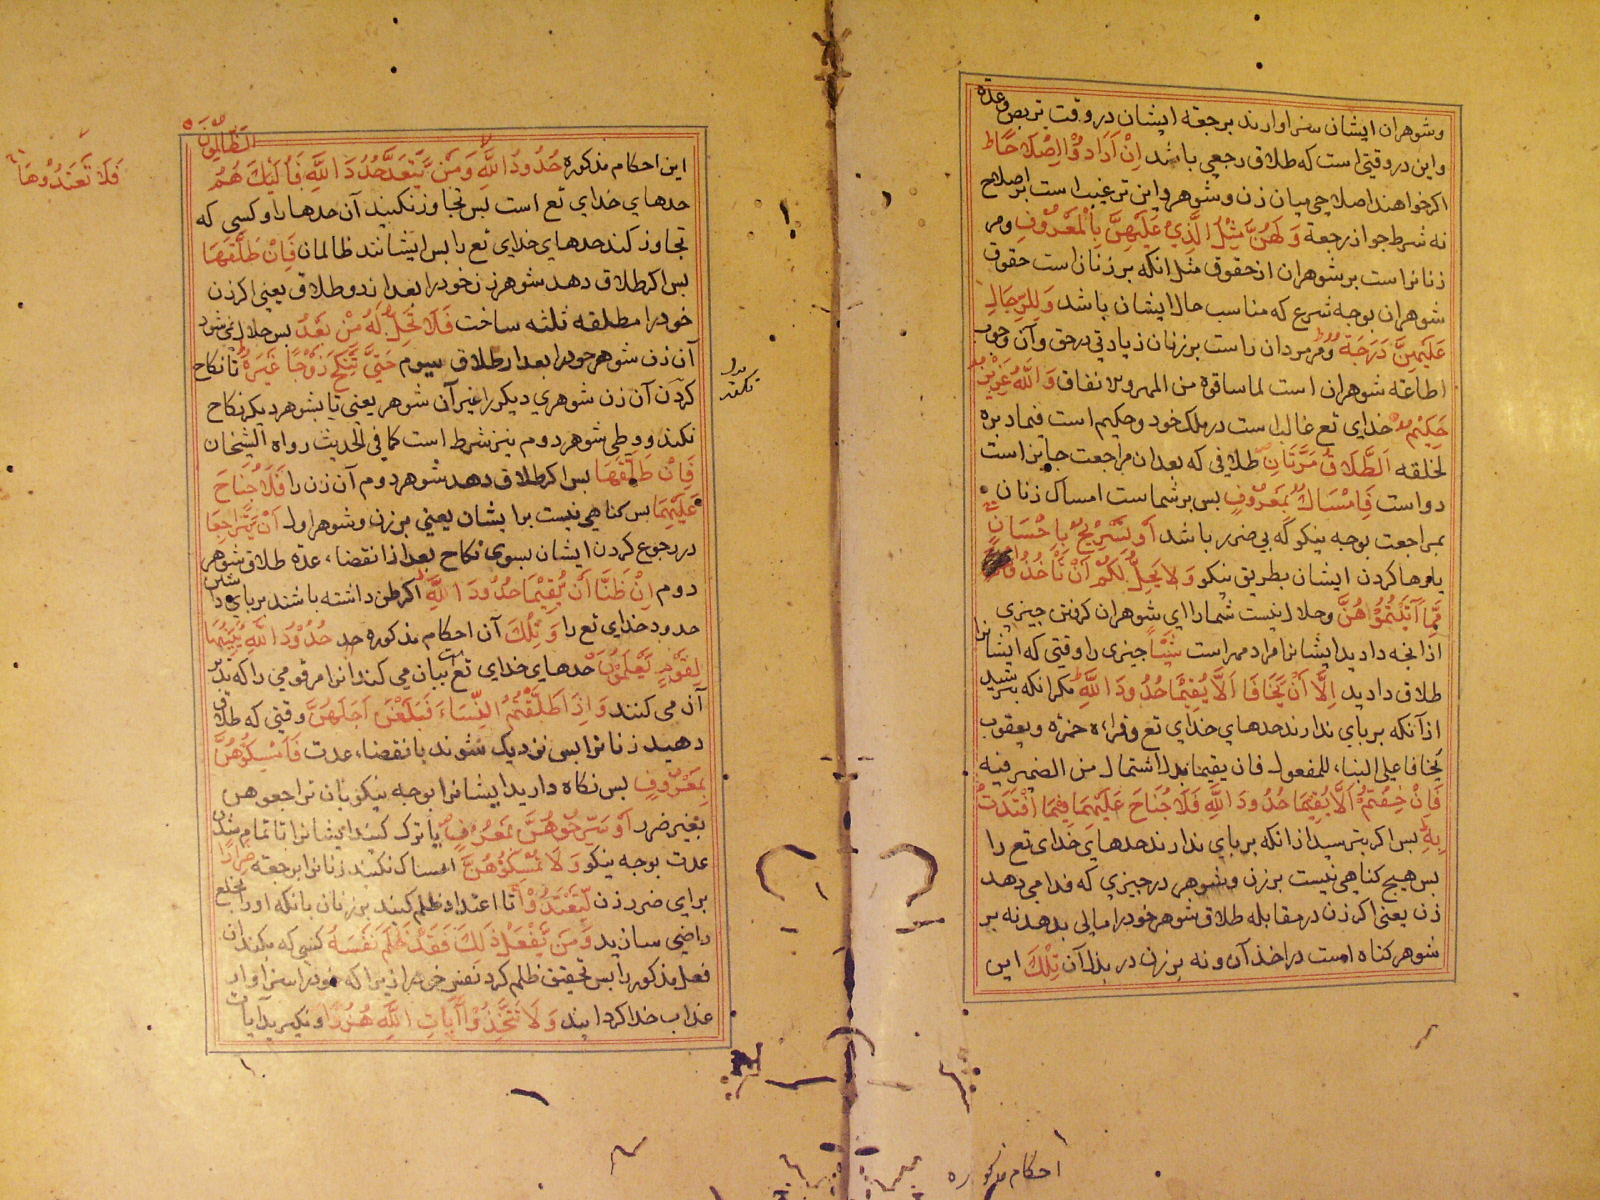 وشوهران ایشان سزاوارند برجعة ایشان در وقت تربص وعدّه
واین در وقتی است که طلاق رجعی باشد اِنْ اَرَادُوْٓا اِصْلَاحًا ط
اکر خواهند اصلاحی میان زن و شوهر واین ترغیب است بر اصلاح
نه شرط جواز رجعة وَلَهُنَّ مِثْلُ الَّذِیْ عَلَیْهِنَّ بِالْمَعْرُوْفِ ومر
زنانراست بر شوهران از حقوق مثل انکه بر زنان است حقوق
شوهران بوجه شرع که مناسب حال ایشان باشد وَلِلرِّجَالِ
عَلَیْهِنَّ دَرَجَةٌ ومر مردان راست بر زنان زیادتی در حق وآن وجوب
اطاعة شوهران است لما ساقوه من المهر والانفاق وَاللّٰهُ عَزِیْزٌ
حَکِیْمٌ خدای تع غالب است در ملک خود وحکیم است فیما دبره
لخلقه اَلطَّلَاقُ مَرَّتَانِ طلاقی که بعد ان مراجعت جایز است
دواست فَاِمْسَاكٌ بِمَعْرُوْفٍ بس بر شماست امساک زنان
بمراجعت بوجه نیکو که بی ضرر باشد اَوْ تَسْرِیْحٌ بِاِحْسَانٍ
یا رها کردن ایشان بطریق نیکو وَلَا یَحِلُّ لَکُمْ اَنْ تَأْخُذُوْا
مِمَّا اٰتَیْتُمُوْهُنَّ وحلال نیست شمارا ای شوهران کرفتن چیزی
از انچه دادید ایشانرا مراد مهر است شَیْئًا چیزی را وقتی که ایشانرا
طلاق دادید اِلَّا اَنْ یَخَافَا اَلَّا یُقِیْمَا حُدُوْدَ اللّٰهِ مکر انکه بترسید
از آنکه بربای ندارند حدهای خدای تع وقراءه حمزه ویعقوب
یُخافا علی البناء للمفعول فان یقیما بدل اشتمال من الضمیر فیه
فَاِنْ خِفْتُمْ اَلَّا یُقِیْمَا حُدُوْدَ اللّٰهِ فَلَا جُنَاحَ عَلَیْهِمَا فِیْمَا افْتَدَتْ
بِهٖ بس اکر بترسید از انکه بربای ندارند حدهای خدای تع را
بس هیچ کناهی نیست بر زن وشوهر در چیزی که فدا می دهد
زن یعنی اکر زن در مقابله طلاق شوهر خود را مالی بدهد نه بر
شوهر کناه است در اخذ آن ونه بر زن در بذل آن تِلْكَ این
احکام مذکوره
الظَّالِمُوْنَ
فَلَا تَعْتَدُوْهَا
این احکام مذکوره حُدُوْدُ اللّٰهِ وَمَنْ یَّتَعَدَّ حُدُوْدَ اللّٰهِ فَاُولٰئِكَ هُمُ
حدهای خدای تع است بس تجاوز نکنید آن حدها را وکسی که
تجاوز کند حدهای خدای تع را بس ایشانند ظالمان فَاِنْ طَلَّقَهَا
بس اکر طلاق دهد شوهر زن خود را بعد از دو طلاق یعنی اکر زن
خود را مطلقه ثلثه ساخت فَلَا تَحِلُّ لَهٗ مِنْ بَعْدُ بس حلال نمی شود
آن زن شوهر خود را بعد از طلاق سیوم حَتّٰی تَنْکِحَ زَوْجًا غَیْرَهٗ تا نکاح
کردن آن زن شوهری دیکر را غیر آن شوهر یعنی تا بشوهر دیکر نکاح
نکند ووطی شوهر دوم نیز شرط است کما فی الحدیث رواه الشیخان
فَاِنْ طَلَّقَهَا بس اکر طلاق دهد شوهر دوم آن زن را فَلَا جُنَاحَ
عَلَیْهِمَا بس کناهی نیست بر ایشان یعنی بر زن وشوهر اول اَنْ یَتَرَاجَعَا
در رجوع کردن ایشان بسوی نکاح بعد از انقضاء عدّه طلاق شوهر
دوم اِنْ ظَنَّا اَنْ یُقِیْمَا حُدُوْدَ اللّٰهِ اکر ظن داشته باشند بربای داشتن
حدود خدای تع را وَتِلْكَ آن احکام مذکوره حد حُدُوْدُ اللّٰهِ یُبَیِّنُهَا
لِقَوْمٍ یَّعْلَمُوْنَ حدهای خدای تع است بیان می کند انرا مر قومی را که تدبر
آن می کنند وَاِذَا طَلَّقْتُمُ النِّسَاءَ فَبَلَغْنَ اَجَلَهُنَّ وقتی که طلاق
دهید زنانرا بس نزدیک شوند بانقضاء عدت فَاَمْسِکُوْهُنَّ
بِمَعْرُوْفٍ بس نکاه دارید ایشانرا بوجه نیکو بان تراجعوهن
بغیر ضرر اَوْ سَرِّحُوْهُنَّ بِمَعْرُوْفٍ یا ترک کنید ایشانرا تا تمام شدن
عدت بوجه نیکو وَلَا تُمْسِکُوْهُنَّ امساک نکنید زنانرا برجعة ضِرَارًا
برای ضرر زن لِتَعْتَدُوْا تا اعتداد ظلم کنید بر زنان بانکه اورا بخلع
راضی سازید وَمَنْ یَّفْعَلْ ذٰلِكَ فَقَدْ ظَلَمَ نَفْسَهٗ کسی که بکند ان
فعل مذکور را بس تحقیق ظلم کرد نفس خود را زیرا که خود را سزاوار
عذاب خدا کردانید وَلَا تَتَّخِذُوْا اٰیَاتِ اللّٰهِ هُزُوًا ونکیرید آیات